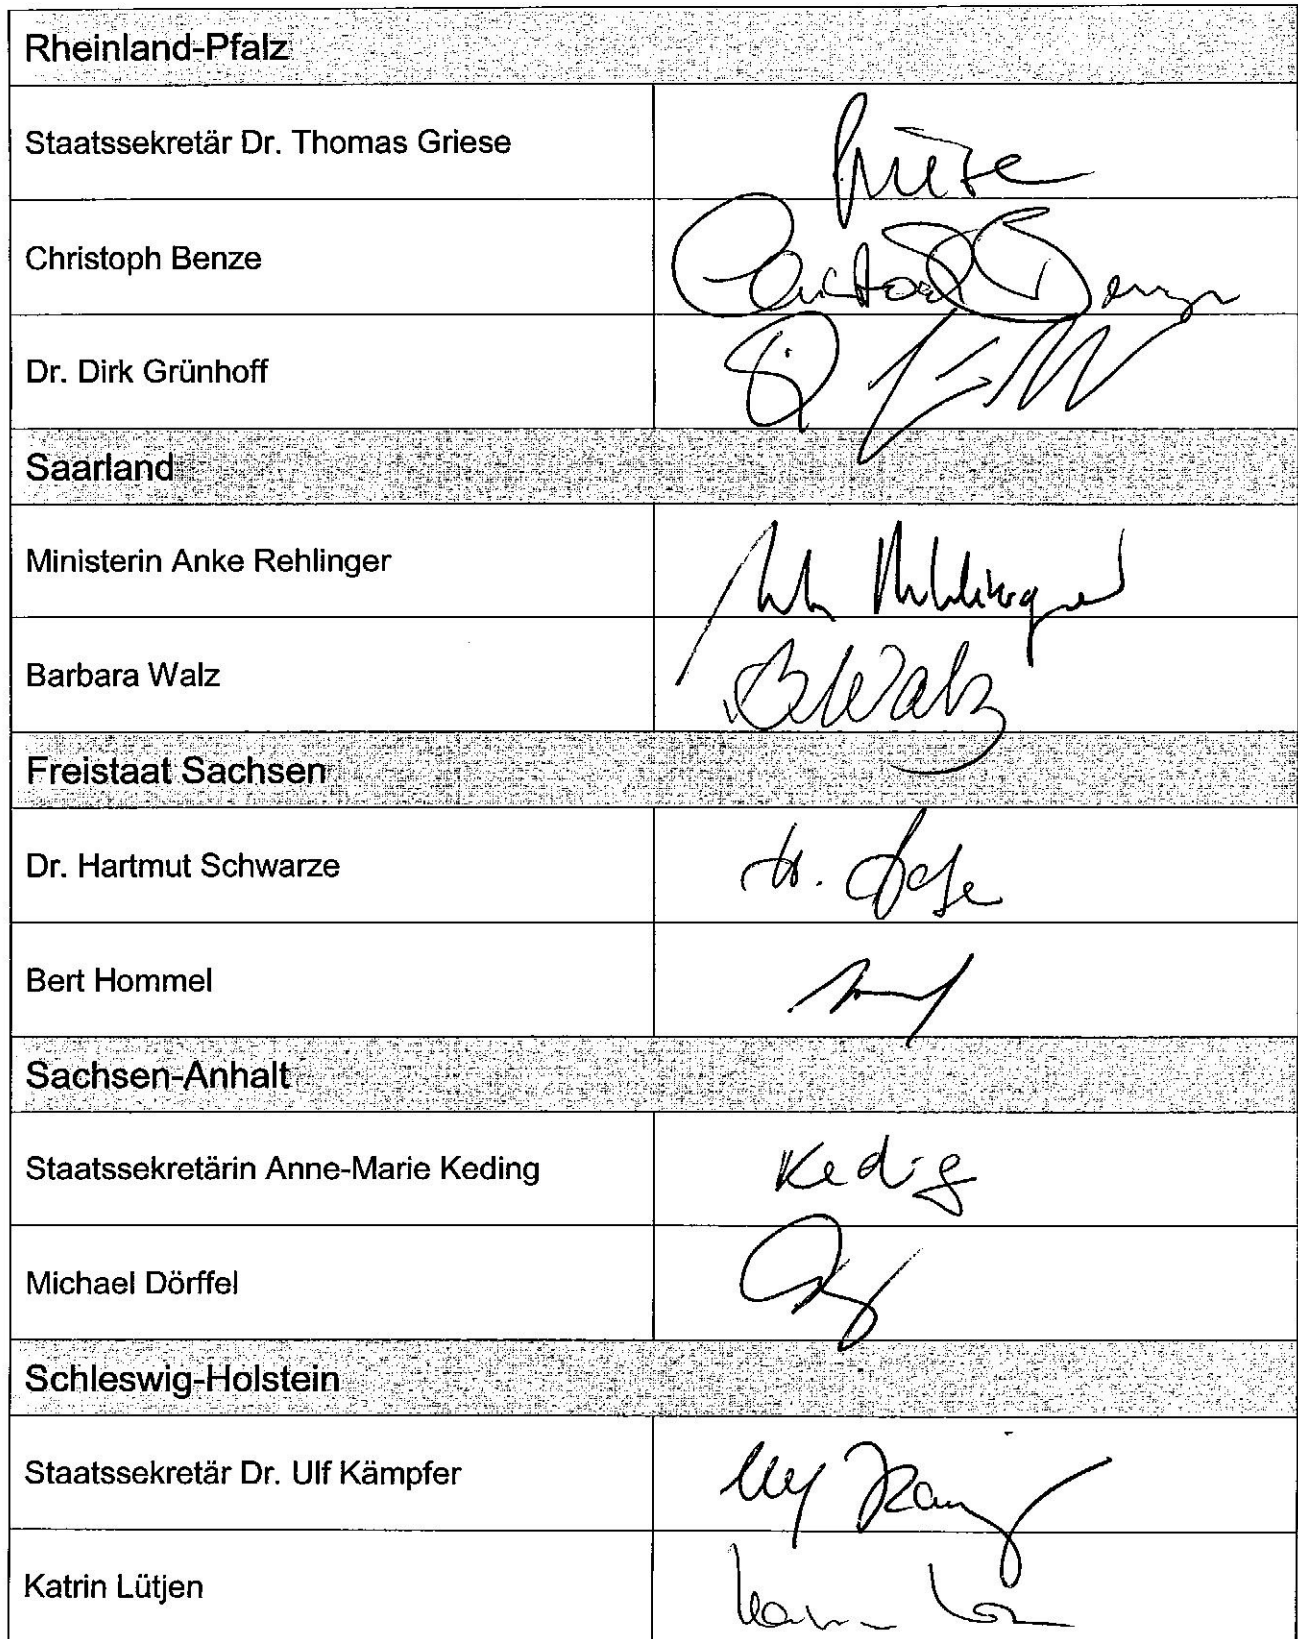 Rheinland-Pfalz
Staatssekretär Dr. Thomas Griese
Griese
Christoph Benze
Christoph Benze
Dr. Dirk Grünhoff
Saarland
Ministerin Anke Rehlinger
Rehlinger
Barbara Walz
B. Walz
Freistaat Sachsen
Dr. Hartmut Schwarze
Bert Hommel
Sachsen-Anhalt
Staatssekretärin Anne-Marie Keding
Keding
Michael Dörffel
Schleswig-Holstein
Staatssekretär Dr. Ulf Kämpfer
Ulf
Katrin Lütjen